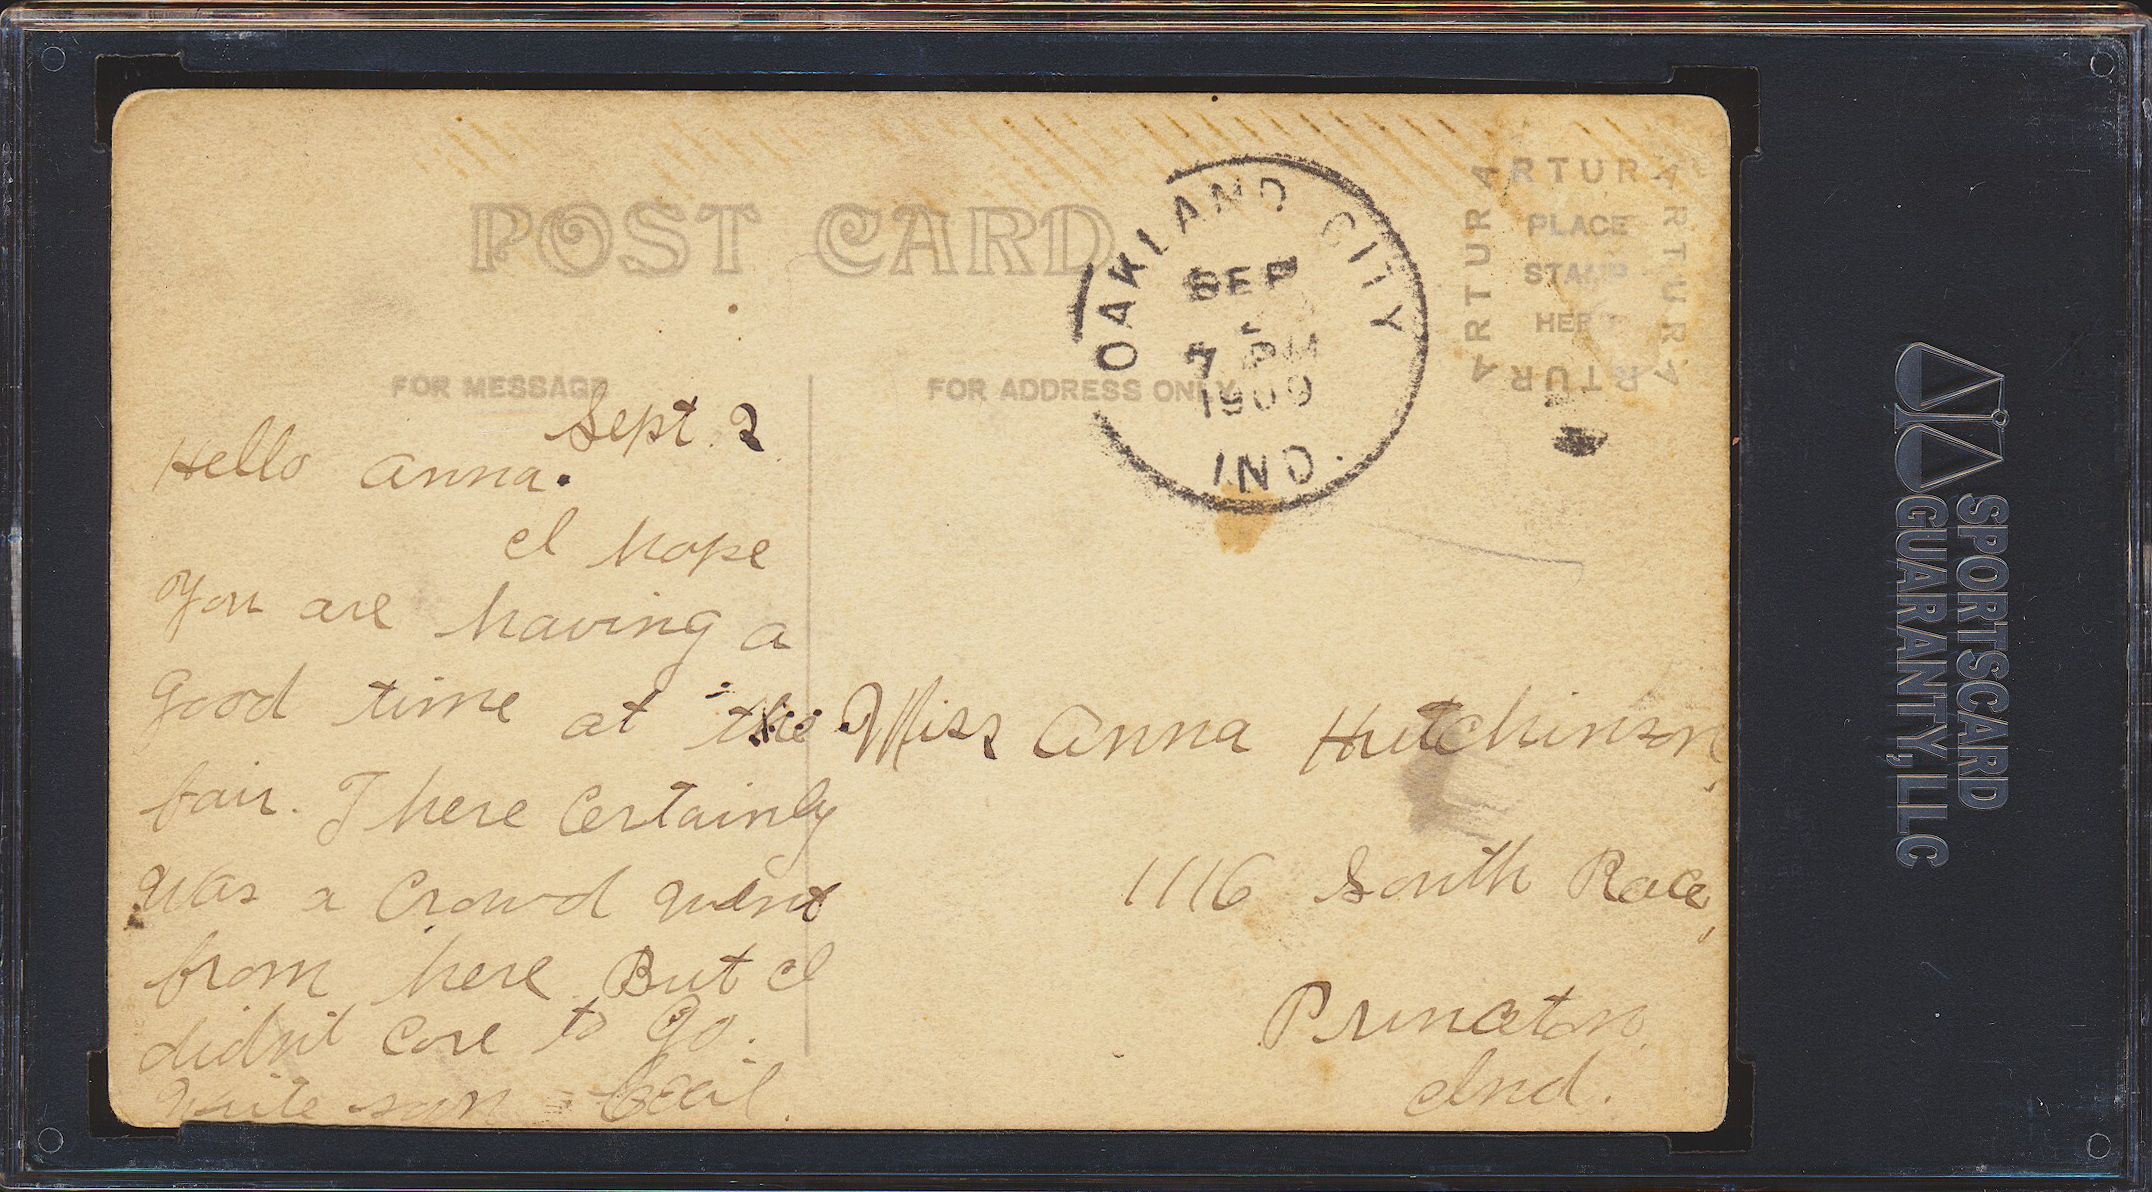 POST CARD
OAKLAND CITY
SEP
7 PM
1909
IND.
ARTURA
ARTURA
ARTURA
ARTURA
PLACE
STAMP
HERE
FOR MESSAGE
FOR ADDRESS ONLY
Sept. 2
Hello Anna.
I hope
you are having a
good time at the
fair. There certainly
was a crowd went
from here But I
didn't care to go.
write soon = Cecil.
Miss Anna Hutchinson,
1116 South Race,
Princeton,
Ind.
SPORTSCARD
GUARANTY, LLC